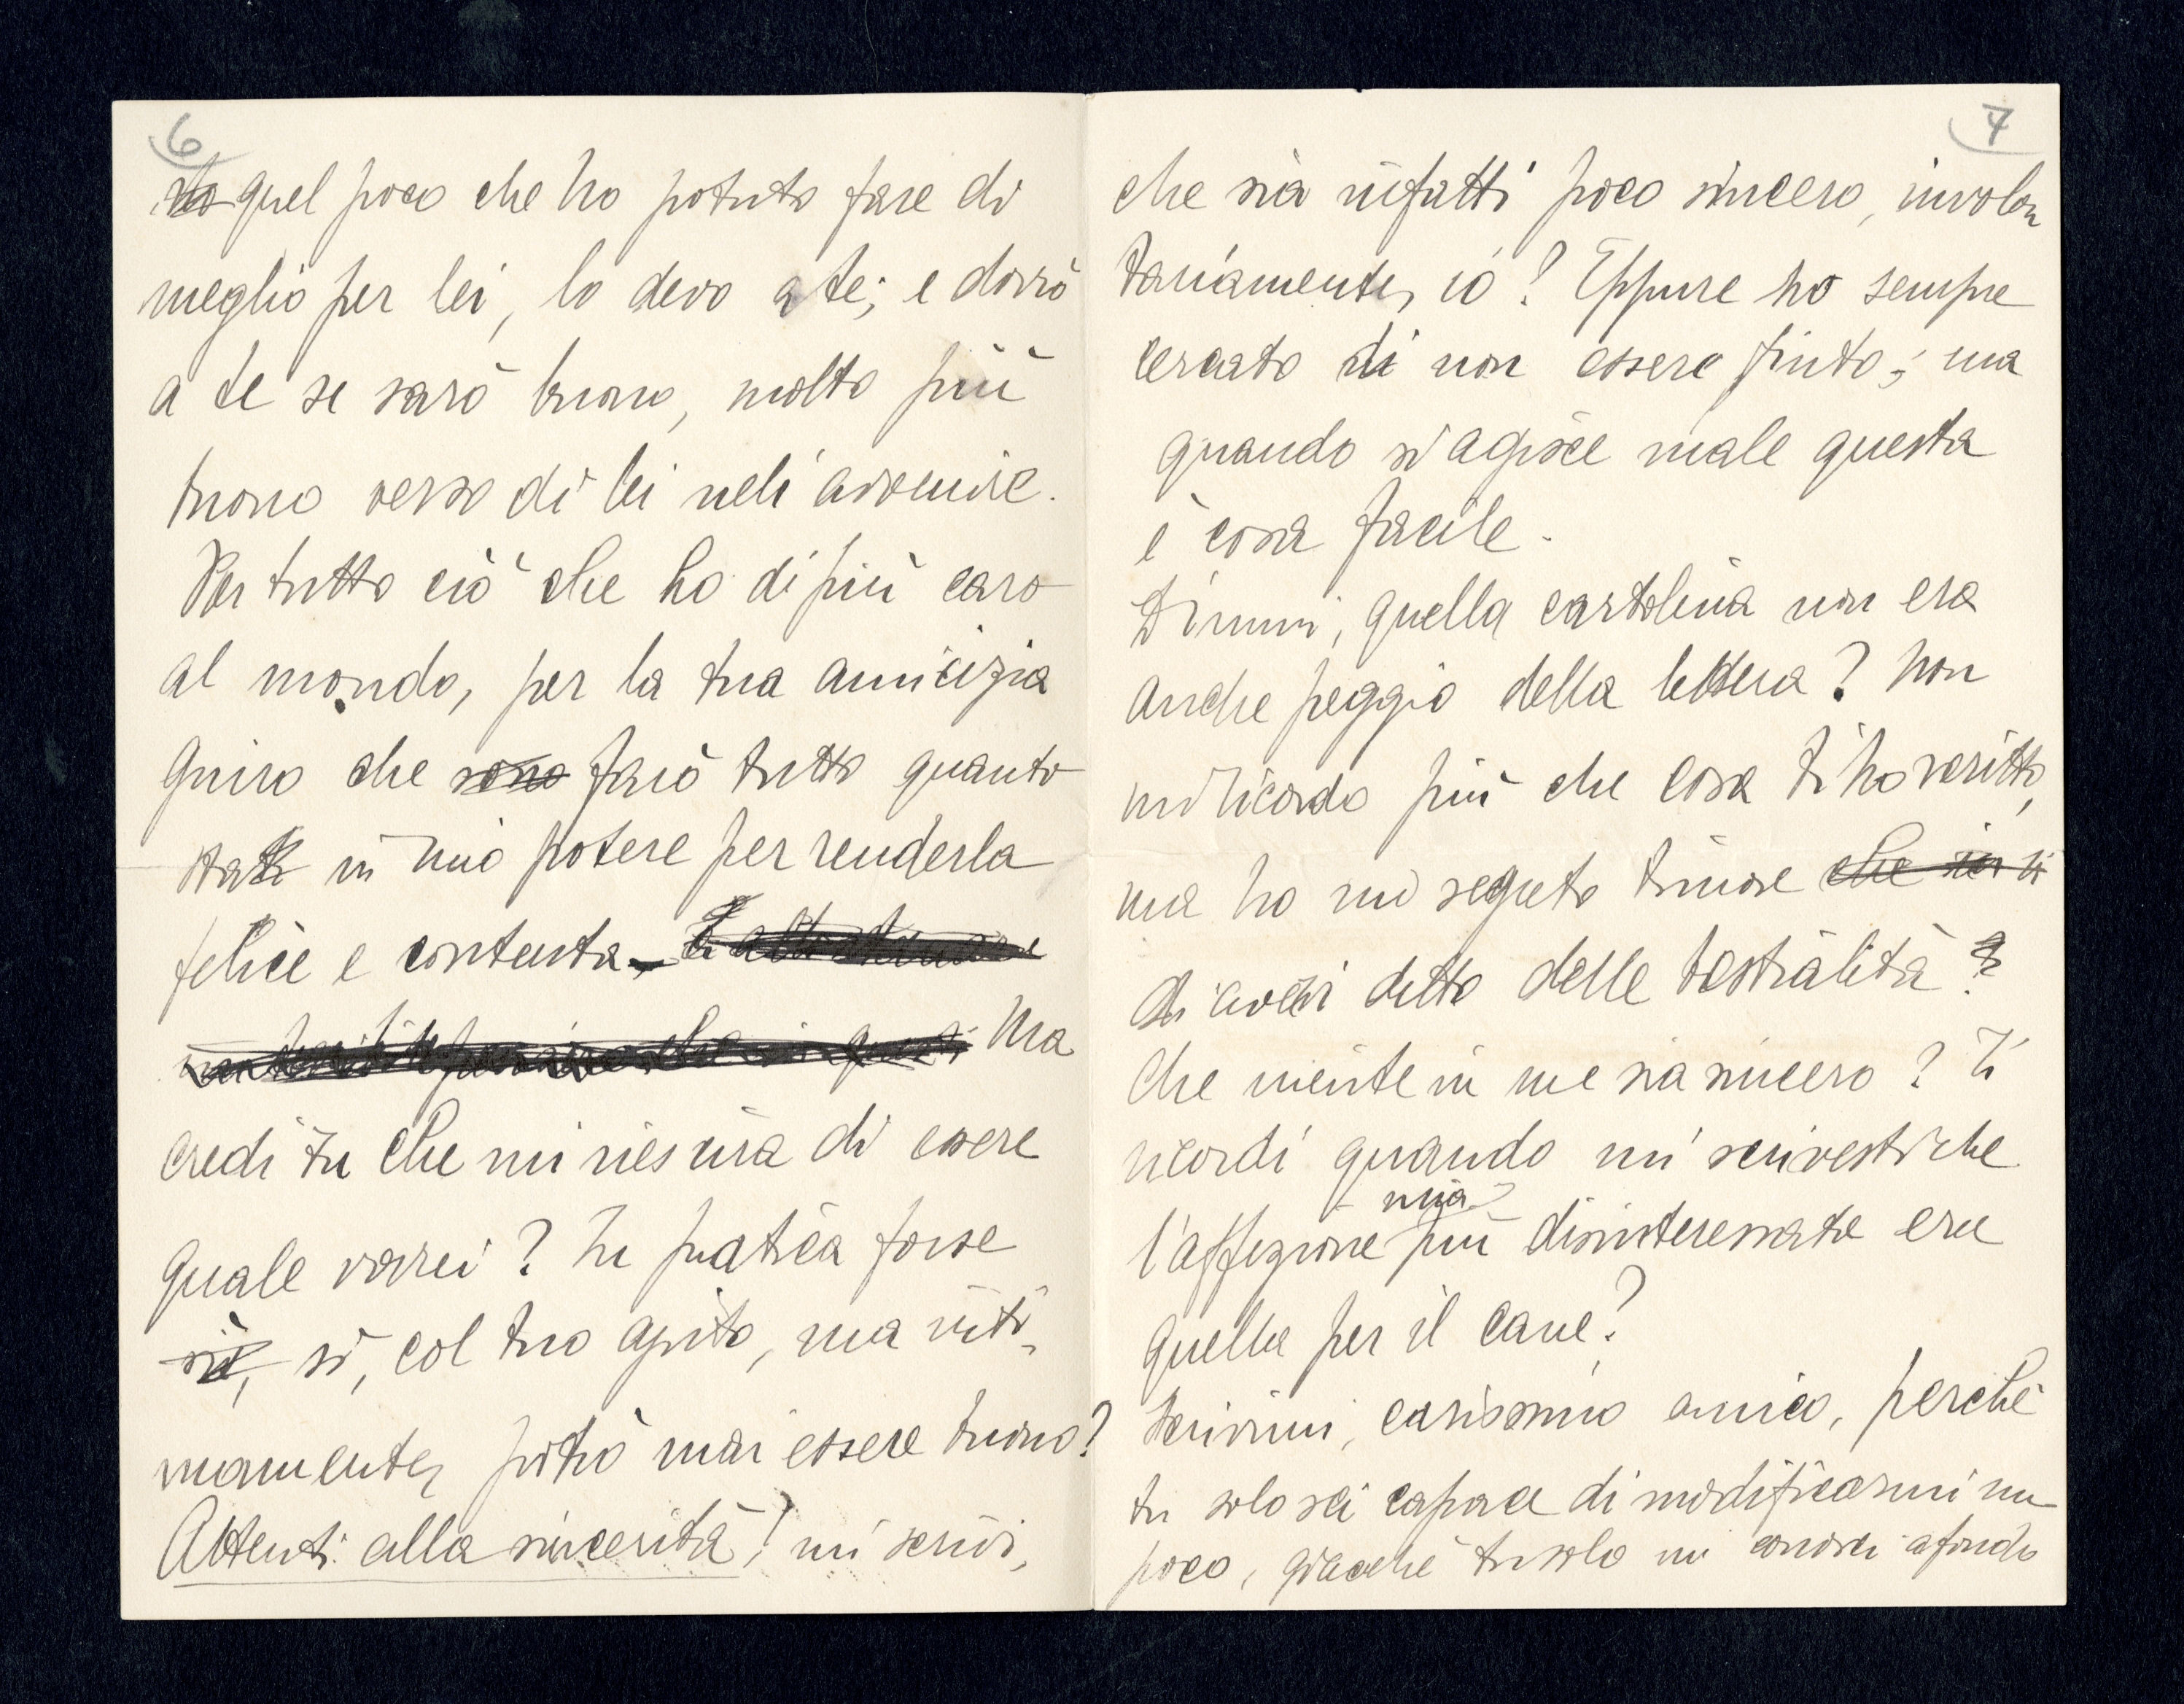 6
quel poco che ho potuto fare di
meglio per lei, lo devo a te; e dovrò
a te se sarò buono, molto più
buono verso di lei nell'avvenire.
Per tutto ciò che ho di più caro
al mondo, per la tua amicizia
giuro che sono farò tutto quanto
sta in mio potere per renderla
felice e contenta.
Ma
credi tu che mi riescirà di essere
quale vorrei? In pratica forse
sì, sì, col tuo ajuto, ma inti-
mamente, potrò mai essere buono?
Attenti alla sincerità! mi scrivi,
7
che sia infatti poco sincero, involon
tariamente, io? Eppure ho sempre
cercato di non essere finto; ma
quando si agisce male questa
è cosa facile.
Dimmi, quella cartolina non era
anche peggio della lettera? Non
mi ricordo più che cosa ti ho scritto,
ma ho un segreto timore che
di averti detto delle bestialità?
Che niente in me sia sincero? Ti
ricordi quando mi scrivesti che
mia
l'affezione più disinteressata era
quella per il cane?
Scrivimi, carissimo amico, perchè
tu solo sei capace di modificarmi un
poco, giacchè tu solo mi conosci a fondo